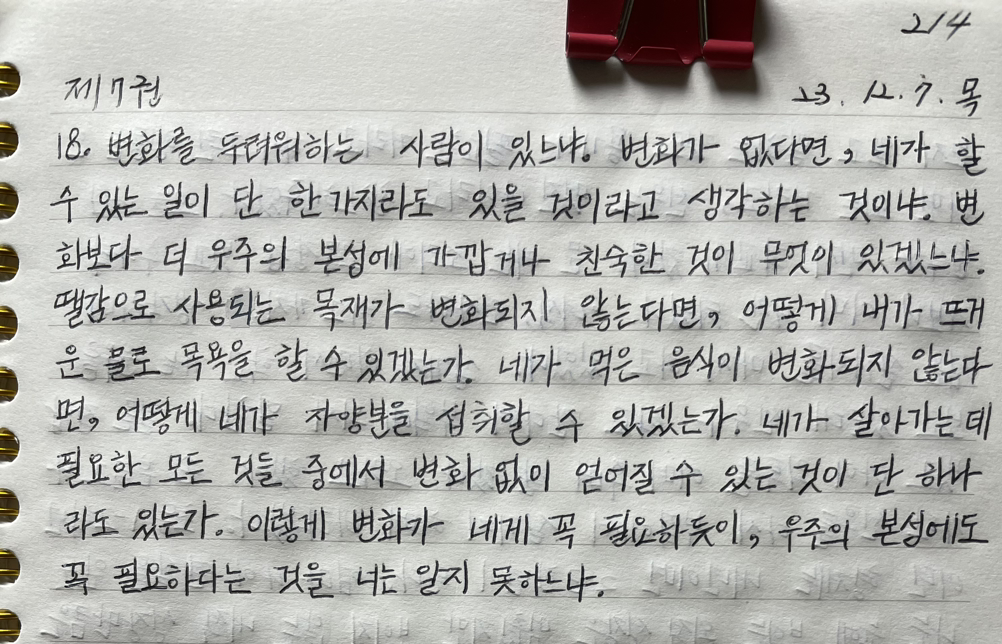 214
제7권 23. 12. 7. 목
18. 변화를 두려워하는 사람이 있느냐. 변화가 없다면, 네가 할
수 있는 일이 단 한가지라도 있을 것이라고 생각하는 것이냐. 변
화보다 더 우주의 본성에 가깝거나 친숙한 것이 무엇이 있겠느냐.
땔감으로 사용되는 목재가 변화되지 않는다면, 어떻게 내가 뜨거
운 물로 목욕을 할 수 있겠는가. 네가 먹은 음식이 변화되지 않는다
면, 어떻게 네가 자양분을 섭취할 수 있겠는가. 네가 살아가는 데
필요한 모든 것들 중에서 변화 없이 얻어질 수 있는 것이 단 하나
라도 있는가. 이렇게 변화가 네게 꼭 필요하듯이, 우주의 본성에도
꼭 필요하다는 것을 너는 알지 못하느냐.